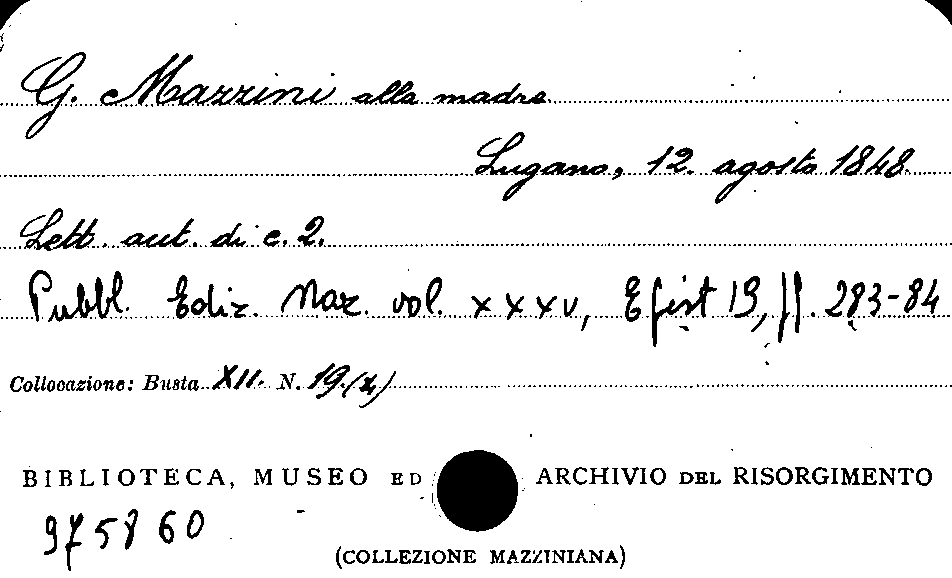 G. Mazzini alla madre
Lugano, 12. agosto 1848.
Lett. aut. di c. 2.
Pubbl. Ediz. Naz. vol. XXXV, Epist 19, pp. 283-84
Collocazione: Busta XII. N. 19.(4)
BIBLIOTECA, MUSEO ED ARCHIVIO DEL RISORGIMENTO
975860
(COLLEZIONE MAZZINIANA)